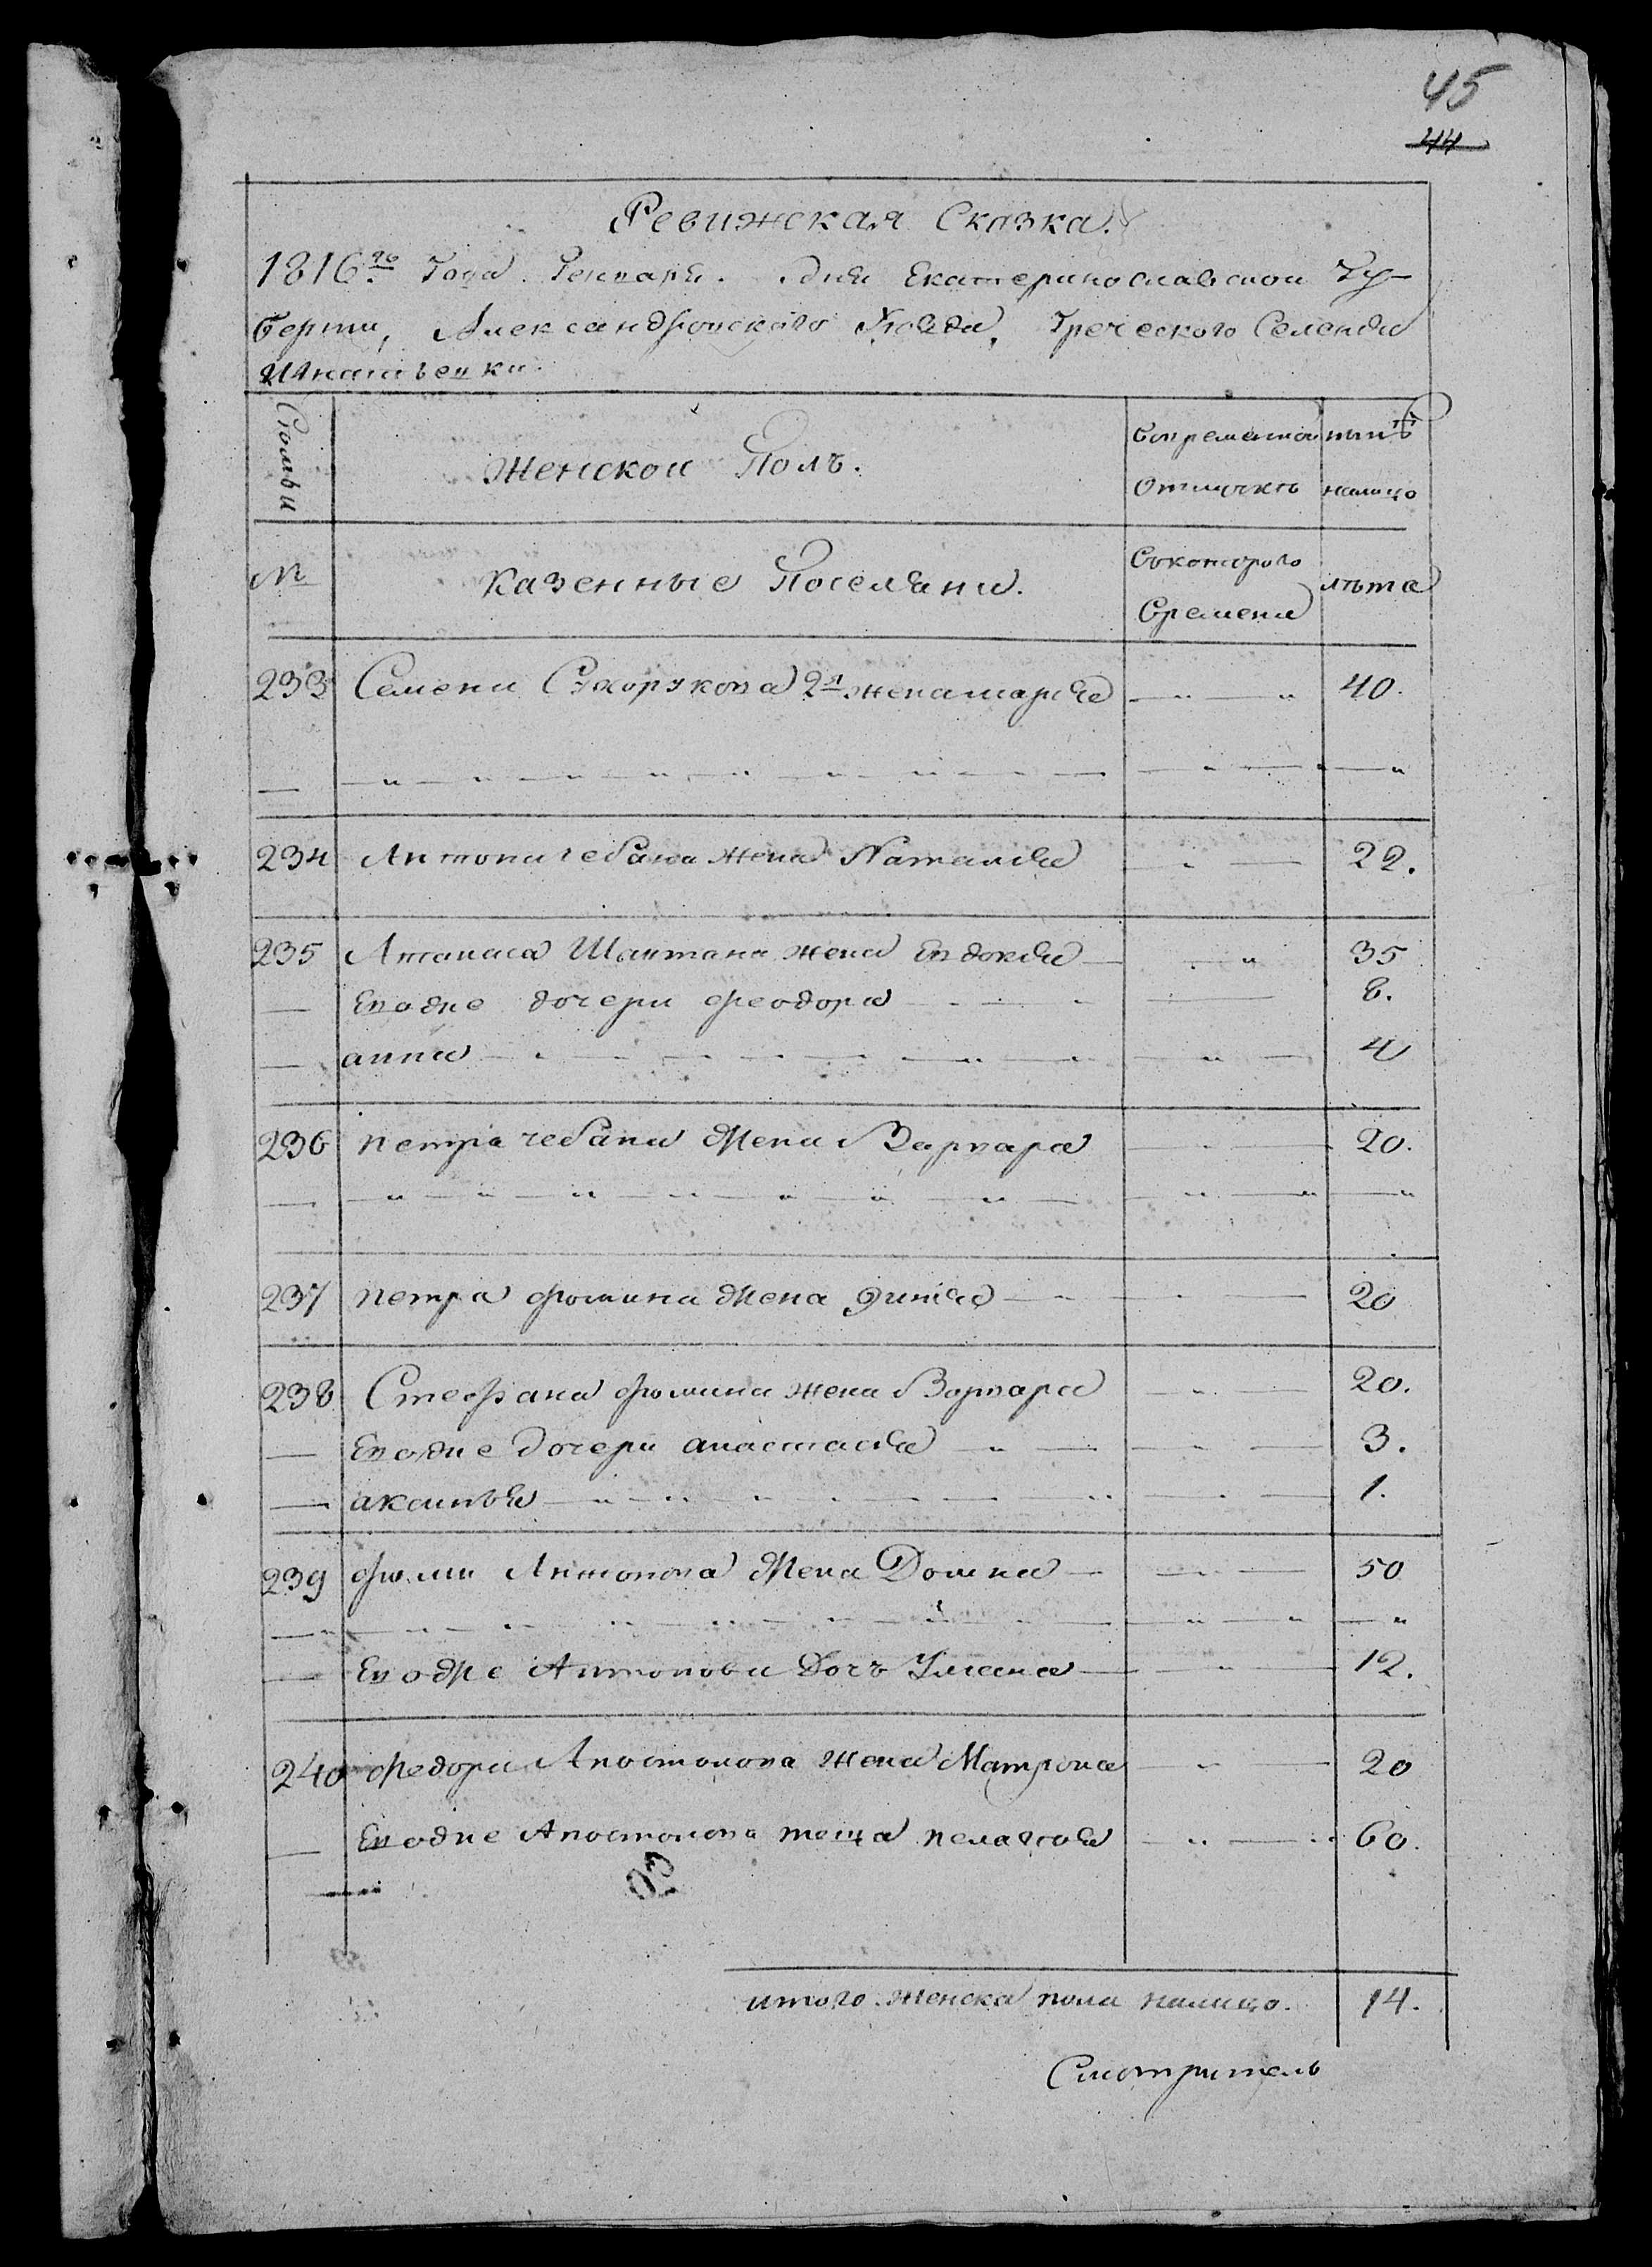 45
44
Ревижская Сказка.
1816го Года Генваря. дня Екатеринославской Гу-
бернии, Александровского Уезда, Греческого Селения
Игнатьевки.
Семьи Женской Полъ. Вовременной нынѣ
Отлучкѣ налицо
№ Казенные Поселяни. Съкоторого лѣта
Времени
233 Семена Сухорукова 2я жена мария 40.
234 Антона чебана жена Наталия 22.
235 Атанаса Шаптана жена Евдокия 35
Еводне дочери феодора 8.
анна 4
236 петра чебана Жена Варвара 20.
237 петра фомина Жена 20
238 Стефана фомина жена Варвара 20.
Еводне дочери анастасия 3.
аксинья 1.
239 фоми Антонова Жена Домна 50
Еводне Антонова Дочъ Улияна 12.
240 федора Апостолова жена Матрона 20
Еводне Апостолова теща пелагия 60.
20
итого женска пола налицо. 14.
Смотритель